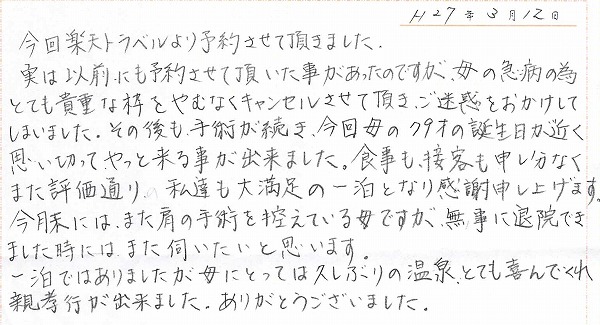 H27年3月12日
今回楽天トラベルより予約させて頂きました.
実は以前にも予約させて頂いた事があったのですが、母の急病の為
とても貴重な枠をやむなくキャンセルさせて頂き、ご迷惑をおかけして
しまいました。その後も、手術が続き、今回母の79才の誕生日が近く
思い切って、やっと来る事が出来ました。食事も、接客も申し分なく
また評価通り、私達も大満足の一泊となり感謝申し上げます。
今月末には、また肩の手術を控えている母ですが、無事に退院でき
ました時には、また伺いたいと思います。
一泊ではありましたが母にとっては久しぶりの温泉、とても喜んでくれ
親孝行が出来ました。ありがとうございました。